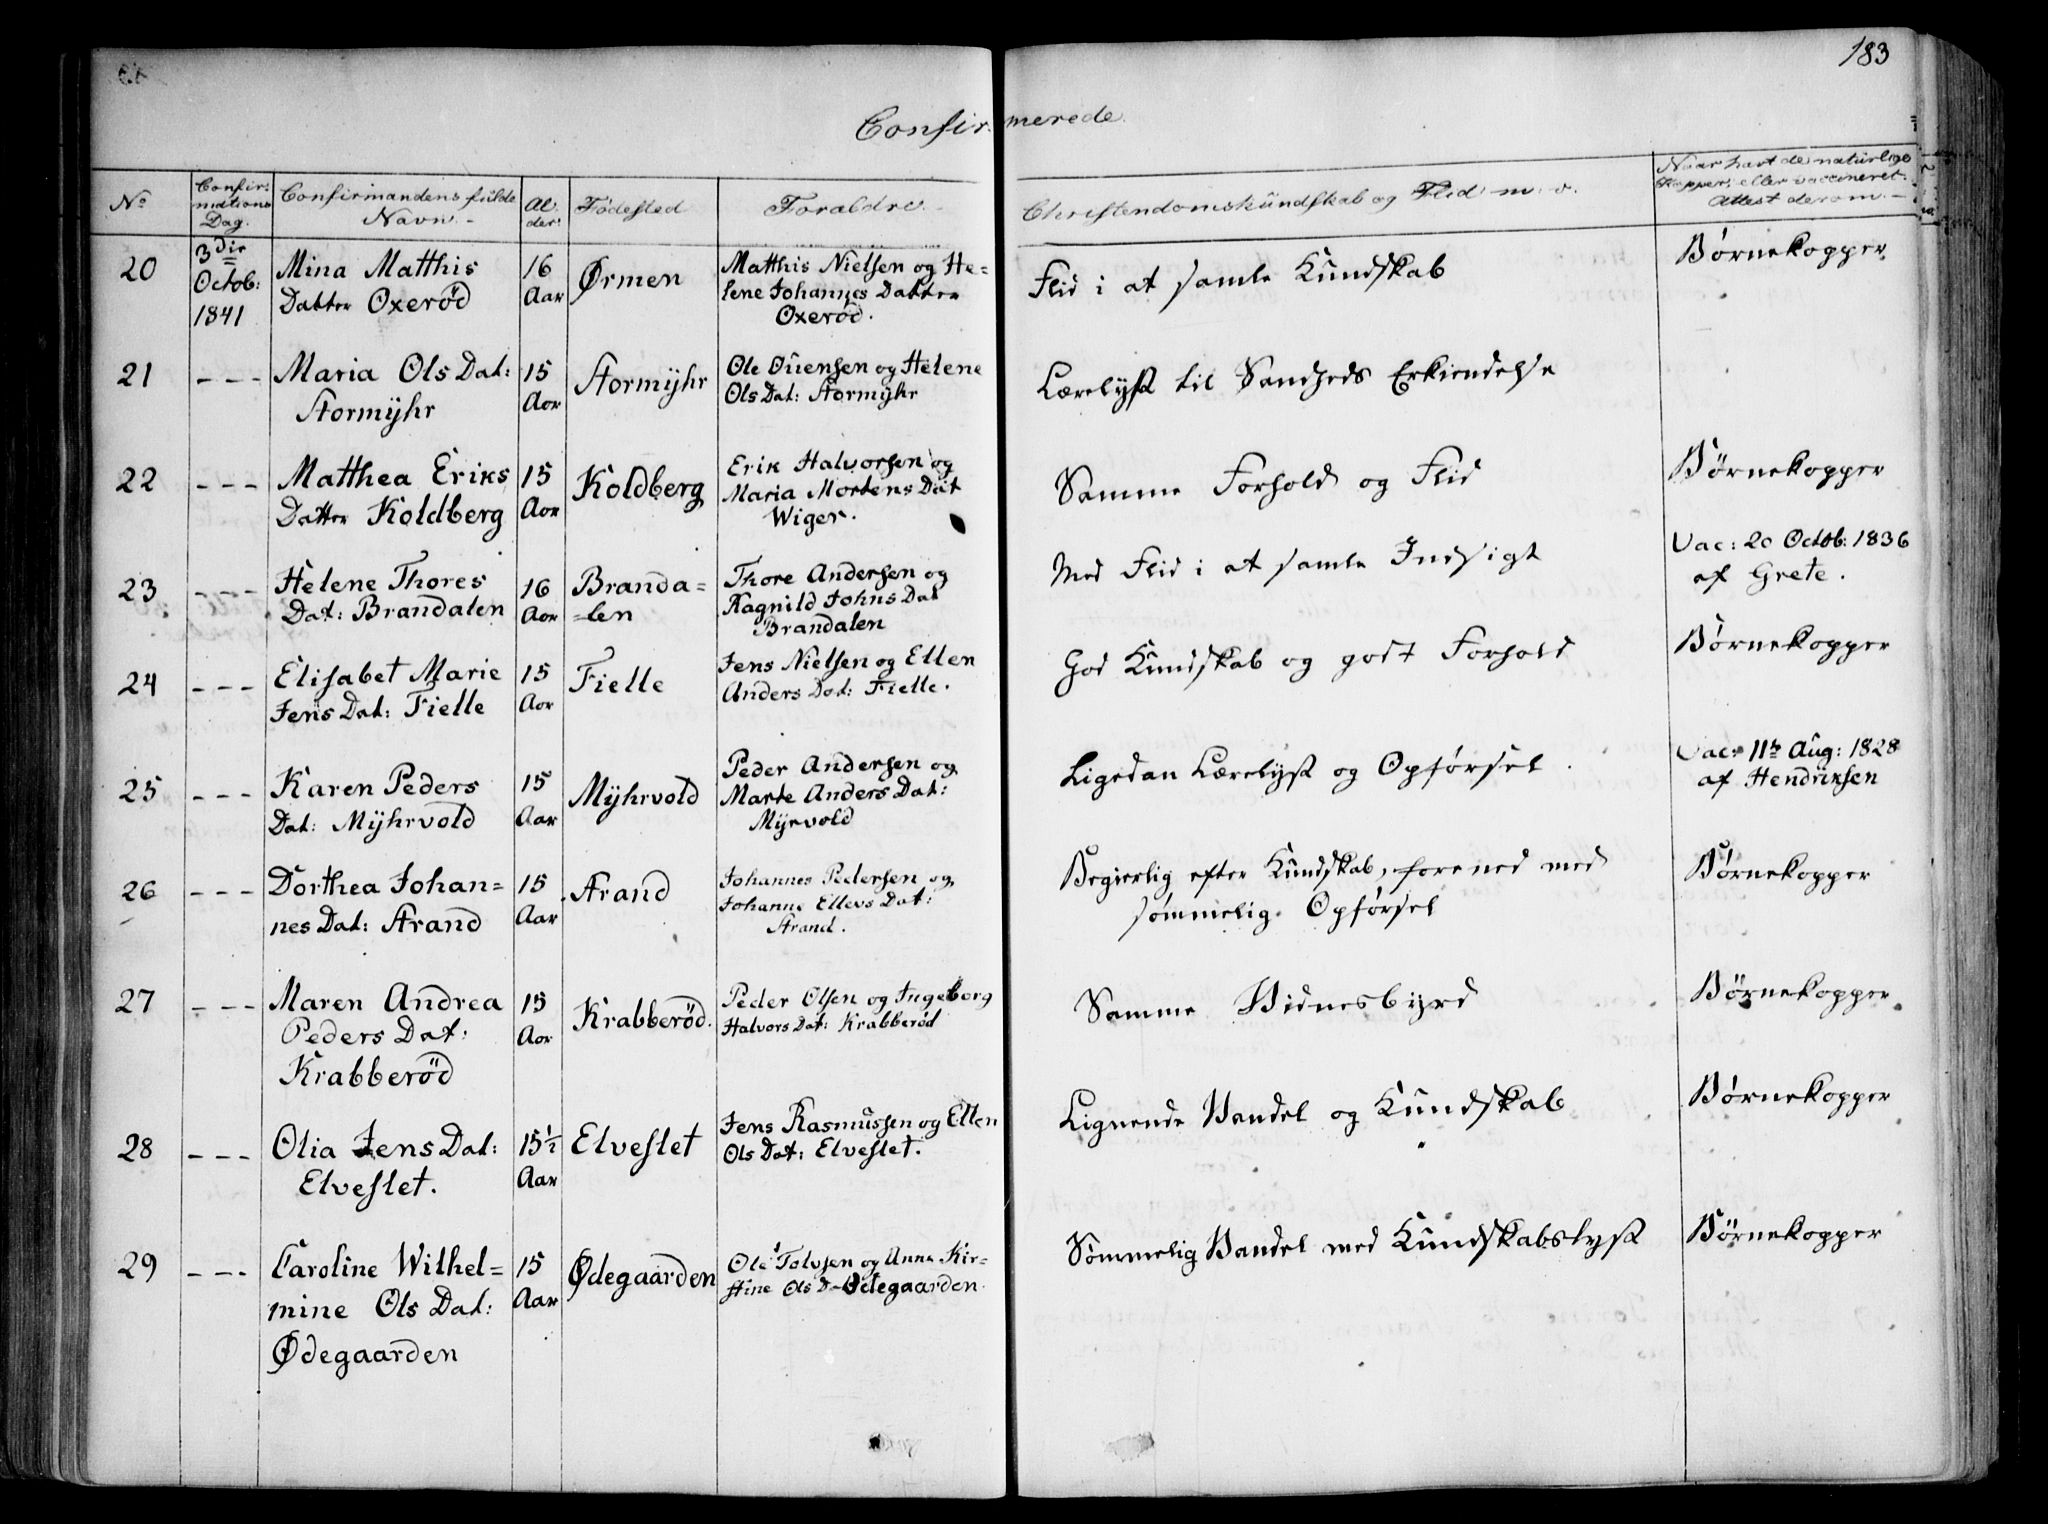 183
Confirmerede
No
Confir-
mations
Dag.
Confirmandens fulde
Navn. -
Al-
der
Födested
Forældre. -
Christendomskundskab og Flid m. v.
Naar havt de naturlige
Kopper, eller vaccineret.
Attest derom. -
20
3die
Octob:
1841
Mina Matthis
Datter Oxeröd
16
Aar
Ørmen
Matthis Nielsen og He=
lene Johannes Datter
Oxeröd.
Flid i at samle Kundskab
Børnekopper
21
- - -
Maria Ols Dat:
Stormÿhr
15
Aar
Stormÿhr
Ole Ouensen og Helene
Ols Dat: Stormÿhr
Lærelyst til Sandheds Erkiendelse
22
- - -
Matthea Eriks
Datter Koldberg
15
Aar
Koldberg
Erik Halvorsen og
Maria Mortens Dat
Wiger.
Samme Forhold og Flid
Børnekopper
23
- - -
Helene Thores
Dat: Brandalen
16
Aar
Branda=
=len
Thore Andersen og
Ragnild Johns Dat
Brandalen
Med Flid i at samle Indsigt
Vac: 20 Octob: 1836
af Grete.
24
- - -
Elisabet Marie
Jens Dat: Fielle
15
Aar
Fielle
Jens Nielsen og Ellen
Anders Dat: Fielle.
God Kundskab og godt Forhold
Børnekopper
25
- - -
Karen Peders
Dat: Mÿhrvold
15
Aar
Mÿhrvold
Peder Andersen og
Marte Anders Dat:
Mÿrvold
Ligedan Lærelyst og Opførsel.
Vac: 11te Aug: 1828
af Hendriksen
26
- - -
Dorthea Johan=
nes Dat: Strand
15
Aar
Strand
Johannes Pedersen og
Johanne Ellevs Dat:
Strand.
Begierlig efter Kundskab, forened med
sømmelig Opførsel
Børnekopper
27
- - -
Maren Andrea
Peders Dat:
Krabberöd
15
Aar
Krabberöd.
Peder Olsen og Ingeborg
Halvors Dat: Krabberöd
Samme Vidnesbyrd
Børnekopper
28
- - -
Olia Jens Dat:
Elveslet.
15½
Aar
Elveslet
Jens Rasmussen og Ellen
Ols Dat: Elveslet.
Lignende Vandel og Kundskab
Børnekopper
29
- - -
Caroline Wilhel=
mine Ols Dat:
Ødegaarden
15
Aar
Ødegaarden
Ole Tolvsen og Anna Kir=
stine Ols D- Ödegaarden.
Sömmelig Vandel med Kundskabslyst
Børnekopper